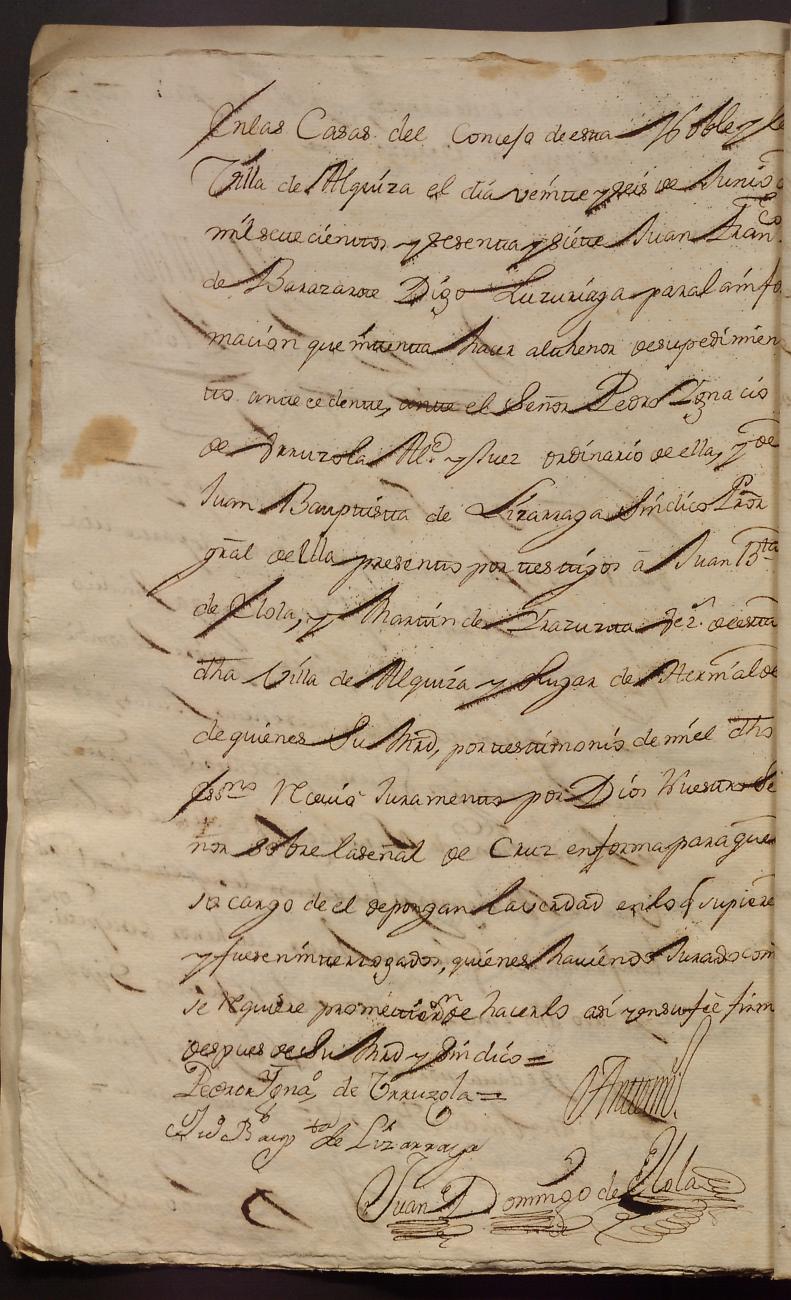 En las Casas del Concejo de esta Noble y Le
Villa de Alquiza el dia veinte y seis de Junio d
mil setecientos y sesenta y siete Juan Fran.co
de Barazarte Digo Luzuriaga para la info
macion que intenta hacer al thenor de su pedimien
to antecedente, ante el Señor Pedro Ignacio
de Urruzola Al.e y Juez ordinario de ella, y de
Juan Bauptista de Lizarraga Sindico Pror
gral de ella presento por testigos a Juan B.ta
de Elola, y Martin de Irazuzta vez.s de esta
dha Villa de Alquiza y Lugar de Hernialde
de quienes Su Mrd, por testimonio de mi el dho
Essno Recivio Juramento por Dios Nuestro Se
ñor sobre la señal de Cruz en forma para que
so cargo de el depongan la verdad en lo q supiere
y fueren interrogados, quienes haviendo Jurado com
se requiere prometieron de hacerlo asi y en su feè firm
despues de Su Mrd y Sindico =
Pedro Igna.o de Urruzola =
Ju.o Baup.ta de Lizarraga
Antemi
Juan Domingo de Elola